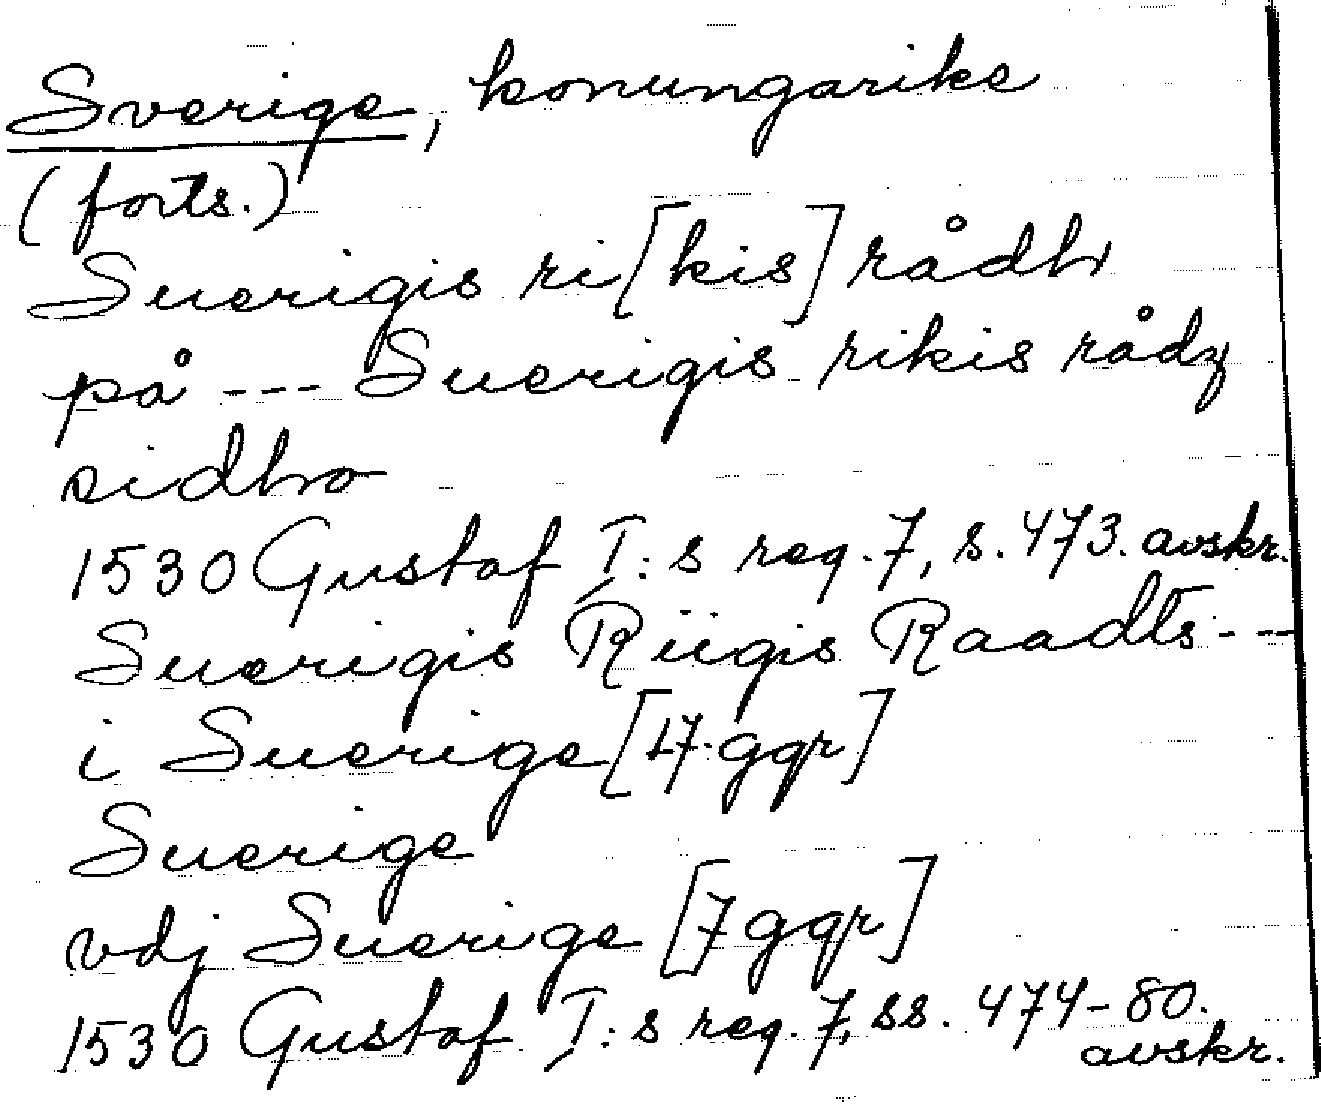 Sverige, konungarike
(forts.)
Suerigis ri[kis] rådh
på --- Suerigis rikis rådz
sidho
1530 Gustaf I:s reg. 7, s. 473. avskr.
Suerigis Riigis Raadts ---
i Suerige [17 ggr]
Suerige
vdj Suerige [7 ggr]
1530 Gustaf I:s reg. 7, ss. 474-80.
avskr.